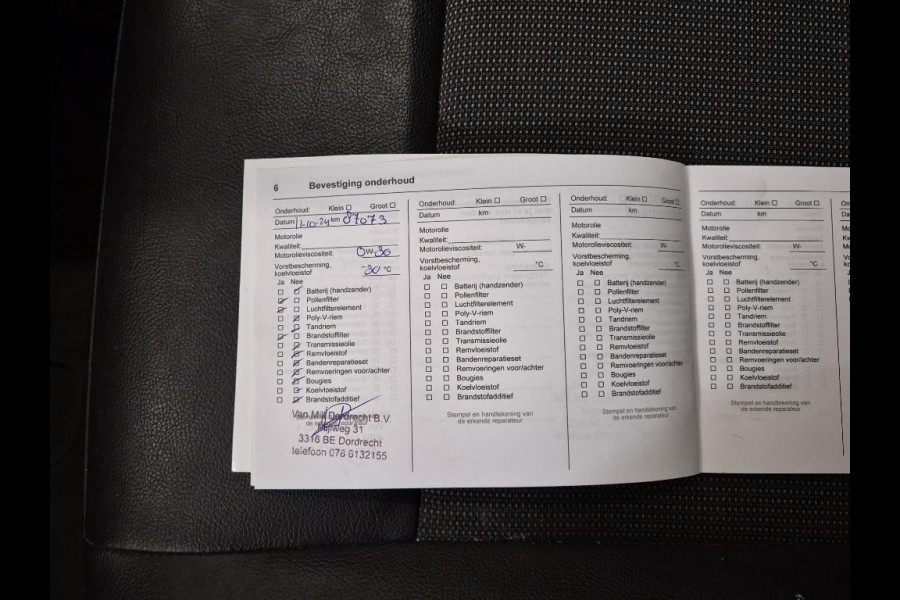 6 Bevestiging onderhoud
Onderhoud: Klein Groot
Datum 1-10-24 km 87073
Motorolie
Kwaliteit:
Motorolieviscositeit: 0W-30
Vorstbescherming,
koelvloeistof -30 °C
Ja Nee
Batterij (handzender)
Pollenfilter
Luchtfilterelement
Poly-V-riem
Tandriem
Brandstoffilter
Transmissieolie
Remvloeistof
Bandenreparatieset
Remvoeringen voor/achter
Bougies
Koelvloeistof
Brandstofadditief
Van Mill Dordrecht B.V.
3316 BE Dordrecht
telefoon 078 6132155
Onderhoud: Klein Groot
Datum km
Motorolie
Kwaliteit:
Motorolieviscositeit: W-
Vorstbescherming,
koelvloeistof °C
Ja Nee
Batterij (handzender)
Pollenfilter
Luchtfilterelement
Poly-V-riem
Tandriem
Brandstoffilter
Transmissieolie
Remvloeistof
Bandenreparatieset
Remvoeringen voor/achter
Bougies
Koelvloeistof
Brandstofadditief
Stempel en handtekening van
de erkende reparateur
Onderhoud: Klein Groot
Datum km
Motorolie
Kwaliteit:
Motorolieviscositeit: W-
Vorstbescherming,
koelvloeistof °C
Ja Nee
Batterij (handzender)
Pollenfilter
Luchtfilterelement
Poly-V-riem
Tandriem
Brandstoffilter
Transmissieolie
Remvloeistof
Bandenreparatieset
Remvoeringen voor/achter
Bougies
Koelvloeistof
Brandstofadditief
Stempel en handtekening van
de erkende reparateur
Onderhoud: Klein Groot
Datum km
Motorolie
Kwaliteit:
Motorolieviscositeit: W-
Vorstbescherming,
koelvloeistof °C
Ja Nee
Batterij (handzender)
Pollenfilter
Luchtfilterelement
Poly-V-riem
Tandriem
Brandstoffilter
Transmissieolie
Remvloeistof
Bandenreparatieset
Remvoeringen voor/achter
Bougies
Koelvloeistof
Brandstofadditief
Stempel en handtekening van
de erkende reparateur